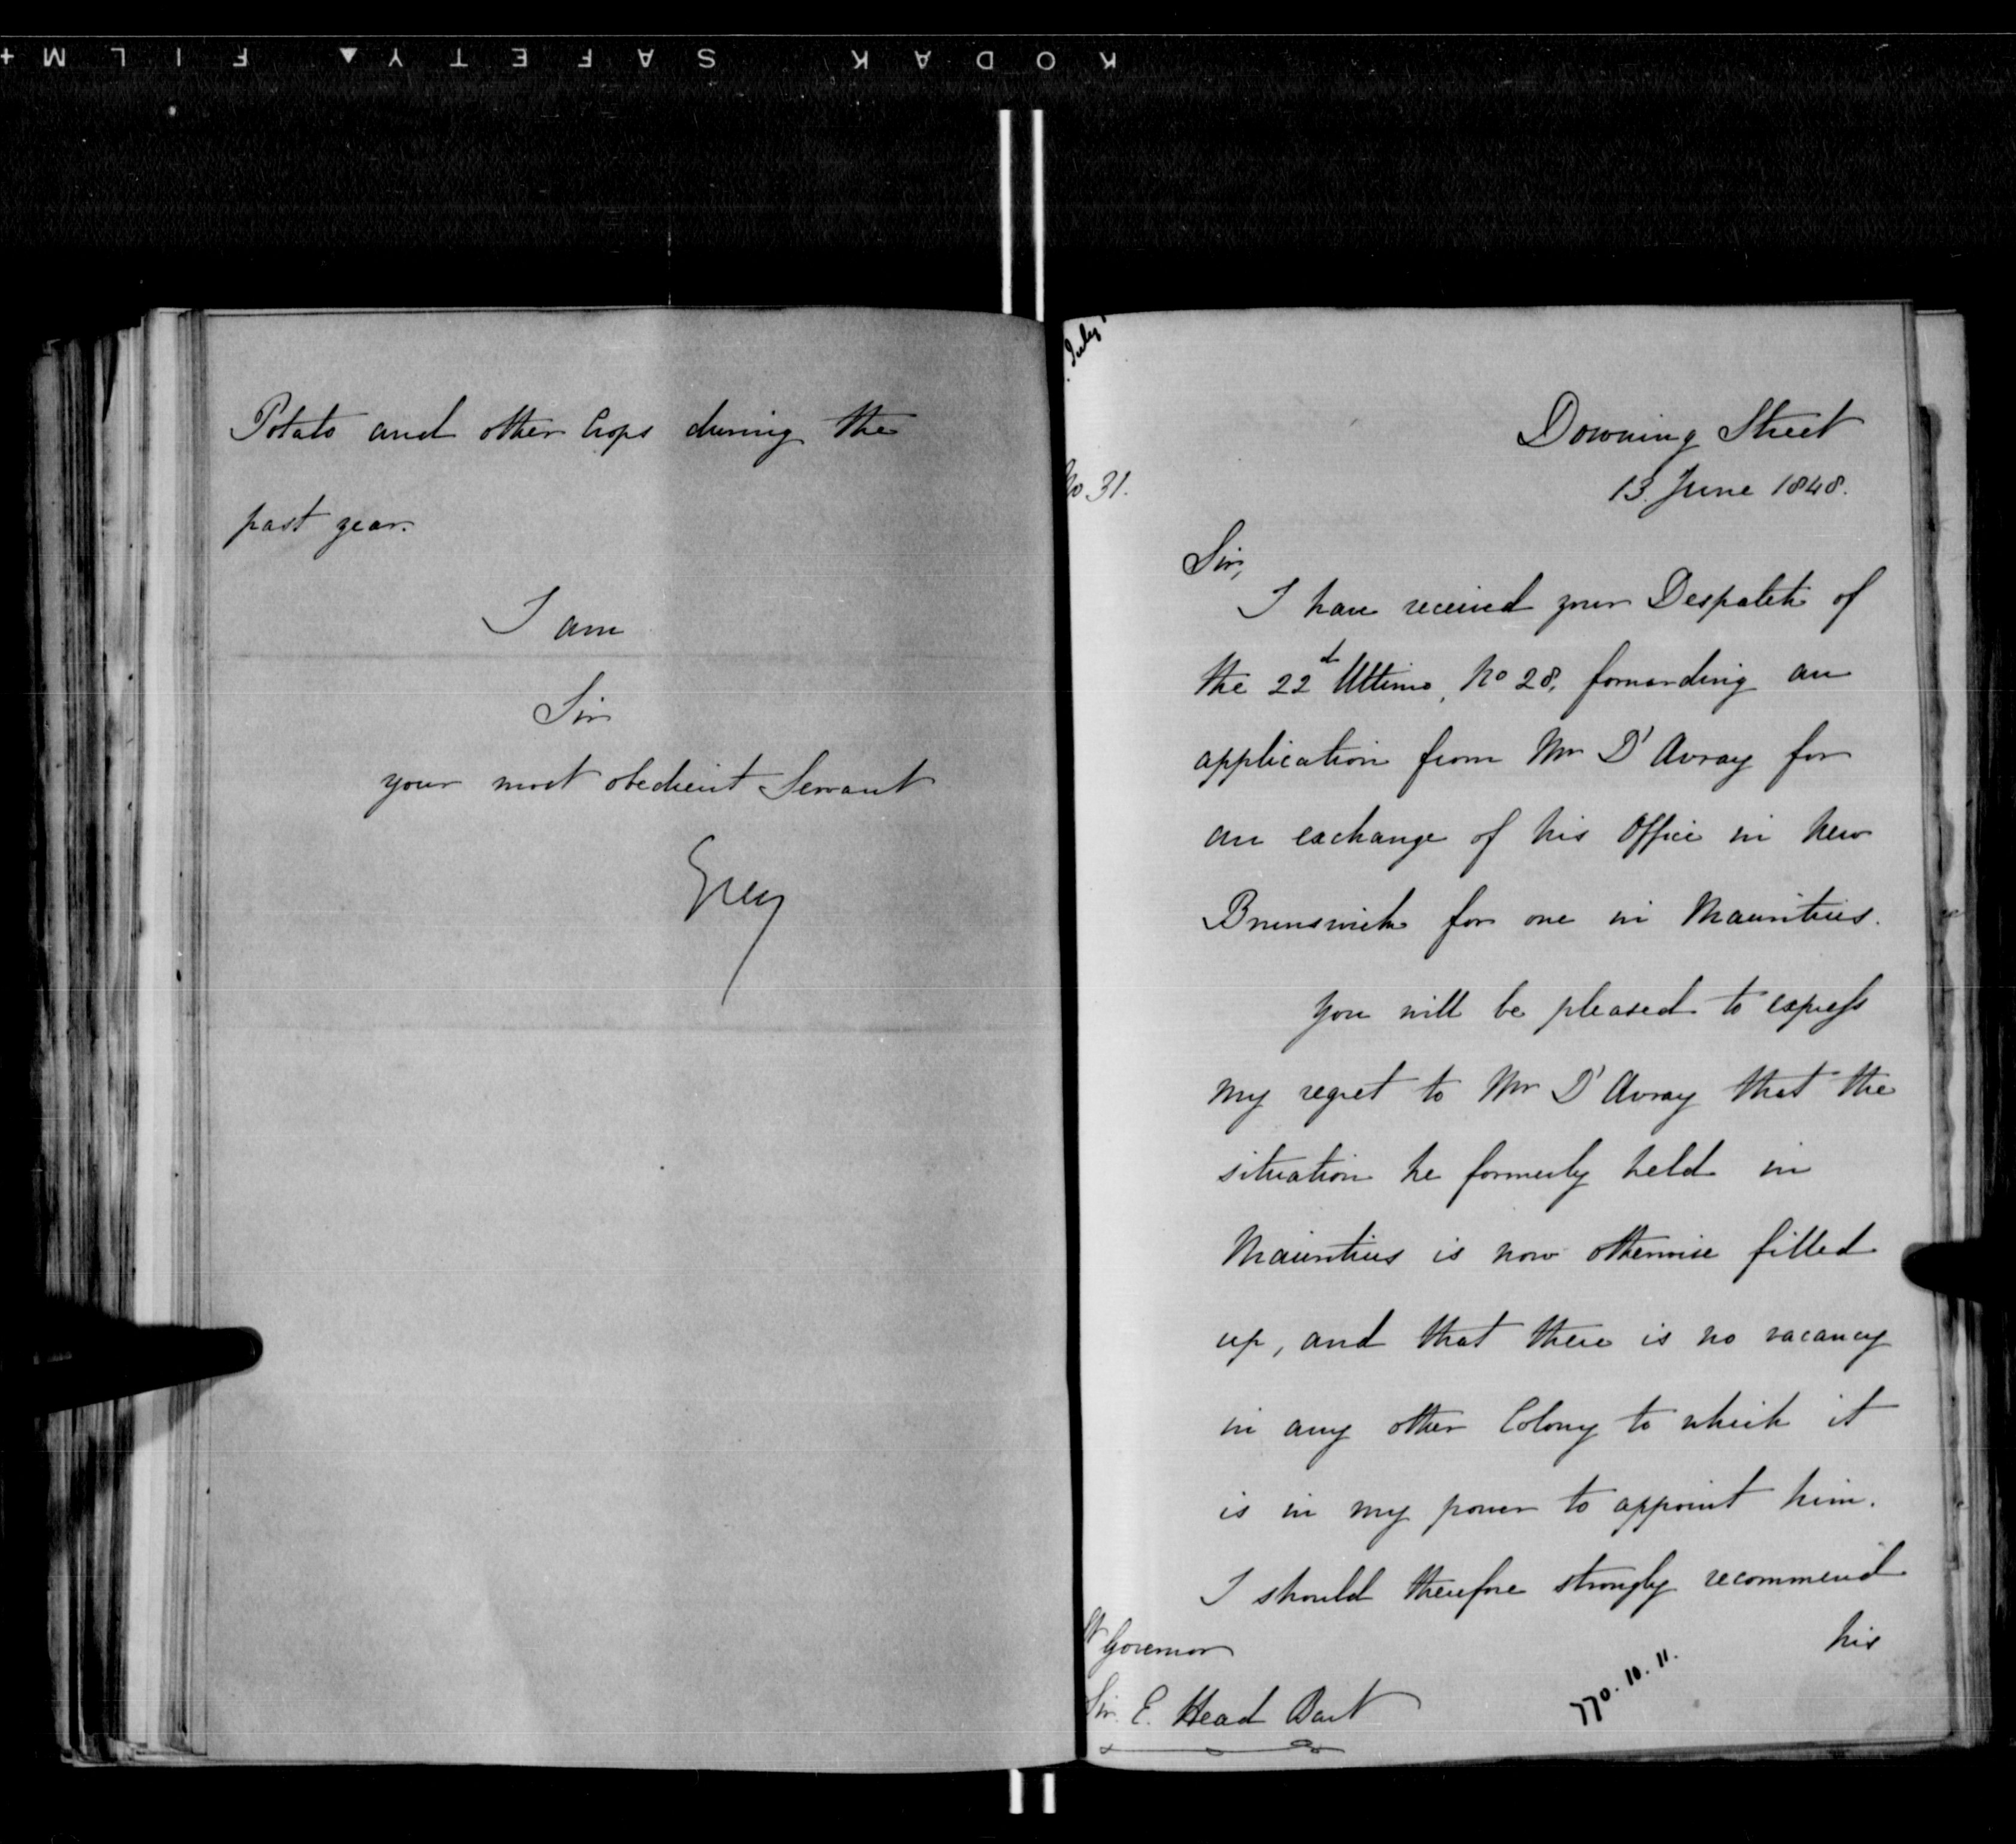 KODAK SAFETY FILM
Potato and other Crops during the
past year.
I am
Sir
your most obedient Servant
Grey
July
No 31.
Downing Street
13 June 1848.
Sir,
I have received your Despatch of
the 22d Ultimo, No 28, forwarding an
application from Mr D'Avray for
an exchange of his Office in New
Brunswick for one in Mauritius.
You will be pleased to express
my regret to Mr D'Avray that the
situation he formerly held in
Mauritius is now otherwise filled
up, and that there is no vacancy
in any other Colony to which it
is in my power to appoint him.
I should therefore strongly recommend
his
Lt Governor
Sir E. Head Bart
770. 10. 11.